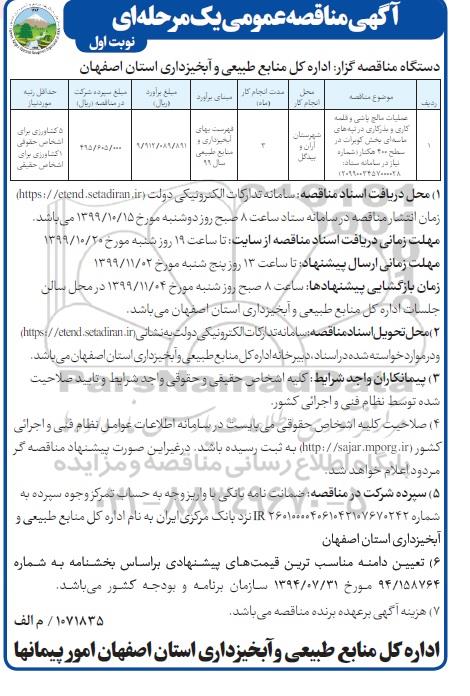 آگهی مناقصه عمومی یک مرحله‌ای
نوبت اول
دستگاه مناقصه گزار: اداره کل منابع طبیعی و آبخیزداری استان اصفهان
ردیف
موضوع مناقصه
محل انجام کار
مدت انجام کار (ماه)
مبنای برآورد
مبلغ برآورد (ریال)
مبلغ سپرده شرکت در مناقصه (ریال)
حداقل رتبه موردنیاز
۱
عملیات مالچ پاشی و قلمه کاری و بذرکاری در تپه‌های ماسه‌ای بخش کویرات در سطح ۴۰۰ هکتار (شماره نیاز در سامانه ستاد: ۲۰۹۹۰۰۳۴۵۷۰۰۰۰۲۸)
شهرستان آران و بیدگل
۳
فهرست بهای آبخیزداری و منابع طبیعی سال ۹۹
۹/۹۱۲/۰۸۹/۸۹۱
۴۹۵/۶۰۵/۰۰۰
۵ کشاورزی برای اشخاص حقوقی ۱ کشاورزی برای اشخاص حقیقی
۱) محل دریافت اسناد مناقصه: سامانه تدارکات الکترونیکی دولت (https://etend.setadiran.ir)
زمان انتشار مناقصه در سامانه ستاد ساعت ۸ صبح روز دوشنبه مورخ ۱۳۹۹/۱۰/۱۵ می‌باشد.
مهلت زمانی دریافت اسناد مناقصه از سایت: تا ساعت ۱۹ روز شنبه مورخ ۱۳۹۹/۱۰/۲۰
مهلت زمانی ارسال پیشنهاد: تا ساعت ۱۳ روز پنج شنبه مورخ ۱۳۹۹/۱۱/۰۲
زمان بازگشایی پیشنهادها: ساعت ۸ صبح روز شنبه مورخ ۱۳۹۹/۱۱/۰۴ در محل سالن
جلسات اداره کل منابع طبیعی و آبخیزداری استان اصفهان می‌باشد.
۲) محل تحویل اسناد مناقصه: سامانه تدارکات الکترونیکی دولت به نشانی (https://etend.setadiran.ir)
و در موارد خواسته شده در اسناد، دبیرخانه اداره کل منابع طبیعی و آبخیزداری استان اصفهان می‌باشد.
۳) پیمانکاران واجد شرایط: کلیه اشخاص حقیقی و حقوقی واجد شرایط و تایید صلاحیت
شده توسط نظام فنی و اجرائی کشور.
۴) صلاحیت کلیه اشخاص حقوقی می‌بایست در سامانه اطلاعات عوامل نظام فنی و اجرائی
کشور (http://sajar.mporg.ir) به ثبت رسیده باشد. درغیراین صورت پیشنهاد مناقصه گر
مردود اعلام خواهد شد.
۵) سپرده شرکت در مناقصه: ضمانت نامه بانکی یا واریز وجه به حساب تمرکز وجوه سپرده به
شماره IR ۲۶۰۱۰۰۰۰۴۰۶۱۰۴۲۱۰۷۶۷۰۲۴۲ نزد بانک مرکزی ایران به نام اداره کل منابع طبیعی و
آبخیزداری استان اصفهان
۶) تعیین دامنه مناسب ترین قیمت‌های پیشنهادی براساس بخشنامه به شماره
۹۴/۱۵۸۷۶۴ مورخ ۱۳۹۴/۰۷/۳۱ سازمان برنامه و بودجه کشور می‌باشد.
۷) هزینه آگهی برعهده برنده مناقصه می‌باشد.
۱۰۷۱۸۳۵ / م الف
اداره کل منابع طبیعی و آبخیزداری استان اصفهان امور پیمانها